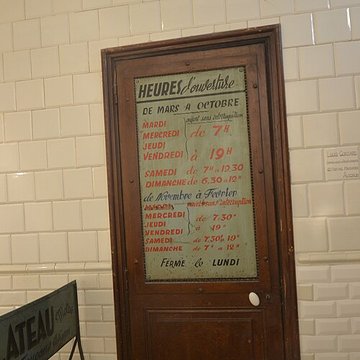 HEURES d'ouverture
DE MARS A OCTOBRE
MARDI ouvert sans interruption
MERCREDI de 7H
JEUDI
VENDREDI à 19H
SAMEDI de 7H à 19.30
DIMANCHE de 6.30 à 12H
de Novembre à Février
MARDI ouvert sans interruption
MERCREDI de 7.30
JEUDI
VENDREDI à 19H
SAMEDI de 7.30 à 19H
DIMANCHE de 7H à 12H
FERMÉ le LUNDI
ATEAU